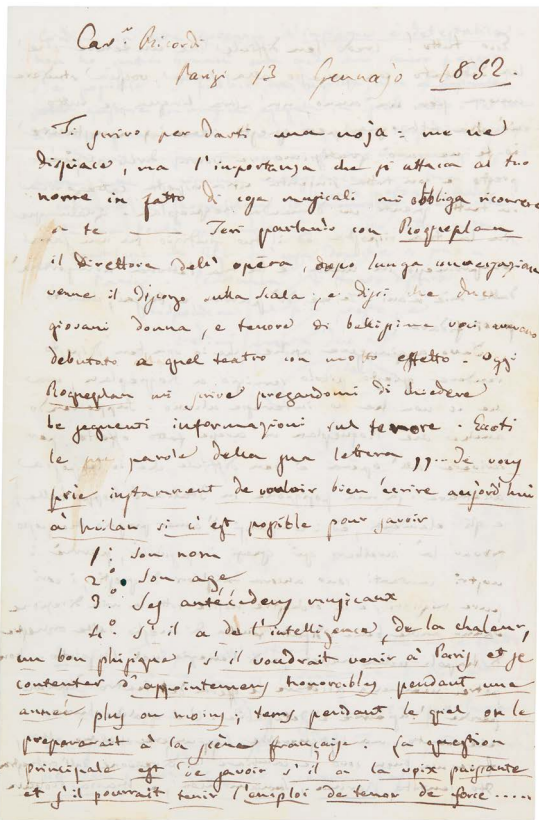 Car.º Ricordi
Parigi 13 Gennajo 1852.
Ti scrivo per darti una noja: me ne
dispiace, ma l'importanza che si attacca al tuo
nome in fatto di cose musicali mi obbliga ricorrere
a te ___ Ieri parlando con Roqueplan
il Direttore dell' opéra, dopo lunga conversazione
venne il discorso sulla Scala, e dissi che due
giovani donna, e tenore di bellissima voce avevano
debutato a quel teatro con molto effetto. Oggi
Roqueplan mi scrive pregandomi di chiedere
le seguenti informazioni sul tenore. Eccoti
le parole della sua lettera ,,... Je vous
prie instamment de vouloir bien écrire aujord'hui
à Milan si c'est possible pour savoir
1º: son nom
2º. Son age
3º. Ses antécédens musicaux
4º. S'il a de l'intelligence, de la chaleur,
un bon phisique, s'il voudrait venir à Paris et se
contenter d'appointemens honorables pendant une
année, plus ou moins; tems pendant le quel on le
preparerait à la scène française. La question
principale est de savoir s'il a la voix puissante
et s'il pourrait tenir l'emploi de tenor de force.....